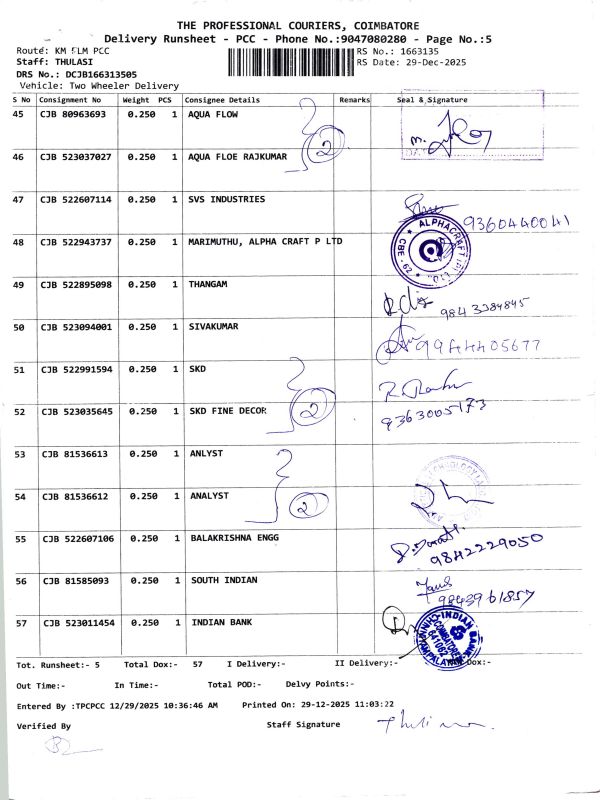 THE PROFESSIONAL COURIERS, COIMBATORE
Delivery Runsheet - PCC - Phone No.:9047080280 - Page No.:5
Route: KM FLM PCC
RS No.: 1663135
Staff: THULASI
RS Date: 29-Dec-2025
DRS No.: DCJB166313505
Vehicle: Two Wheeler Delivery
S No Consignment No Weight PCS Consignee Details Remarks Seal & Signature
45 CJB 80963693 0.250 1 AQUA FLOW
2
46 CJB 523037027 0.250 1 AQUA FLOE RAJKUMAR
47 CJB 522607114 0.250 1 SVS INDUSTRIES
9360440041
48 CJB 522943737 0.250 1 MARIMUTHU, ALPHA CRAFT P LTD
ALPHACRAFT
CBE. 62
49 CJB 522895098 0.250 1 THANGAM
984 3384845
50 CJB 523094001 0.250 1 SIVAKUMAR
9944405677
51 CJB 522991594 0.250 1 SKD
52 CJB 523035645 0.250 1 SKD FINE DECOR
2
9363005173
53 CJB 81536613 0.250 1 ANLYST
54 CJB 81536612 0.250 1 ANALYST
2
55 CJB 522607106 0.250 1 BALAKRISHNA ENGG
9842229050
56 CJB 81585093 0.250 1 SOUTH INDIAN
9843961857
57 CJB 523011454 0.250 1 INDIAN BANK
INDIAN BANK
COIMBATORE
641062
Tot. Runsheet:- 5 Total Dox:- 57 I Delivery:- II Delivery:- Dox:-
Out Time:- In Time:- Total POD:- Delvy Points:-
Entered By :TPCPCC 12/29/2025 10:36:46 AM Printed On: 29-12-2025 11:03:22
Verified By Staff Signature